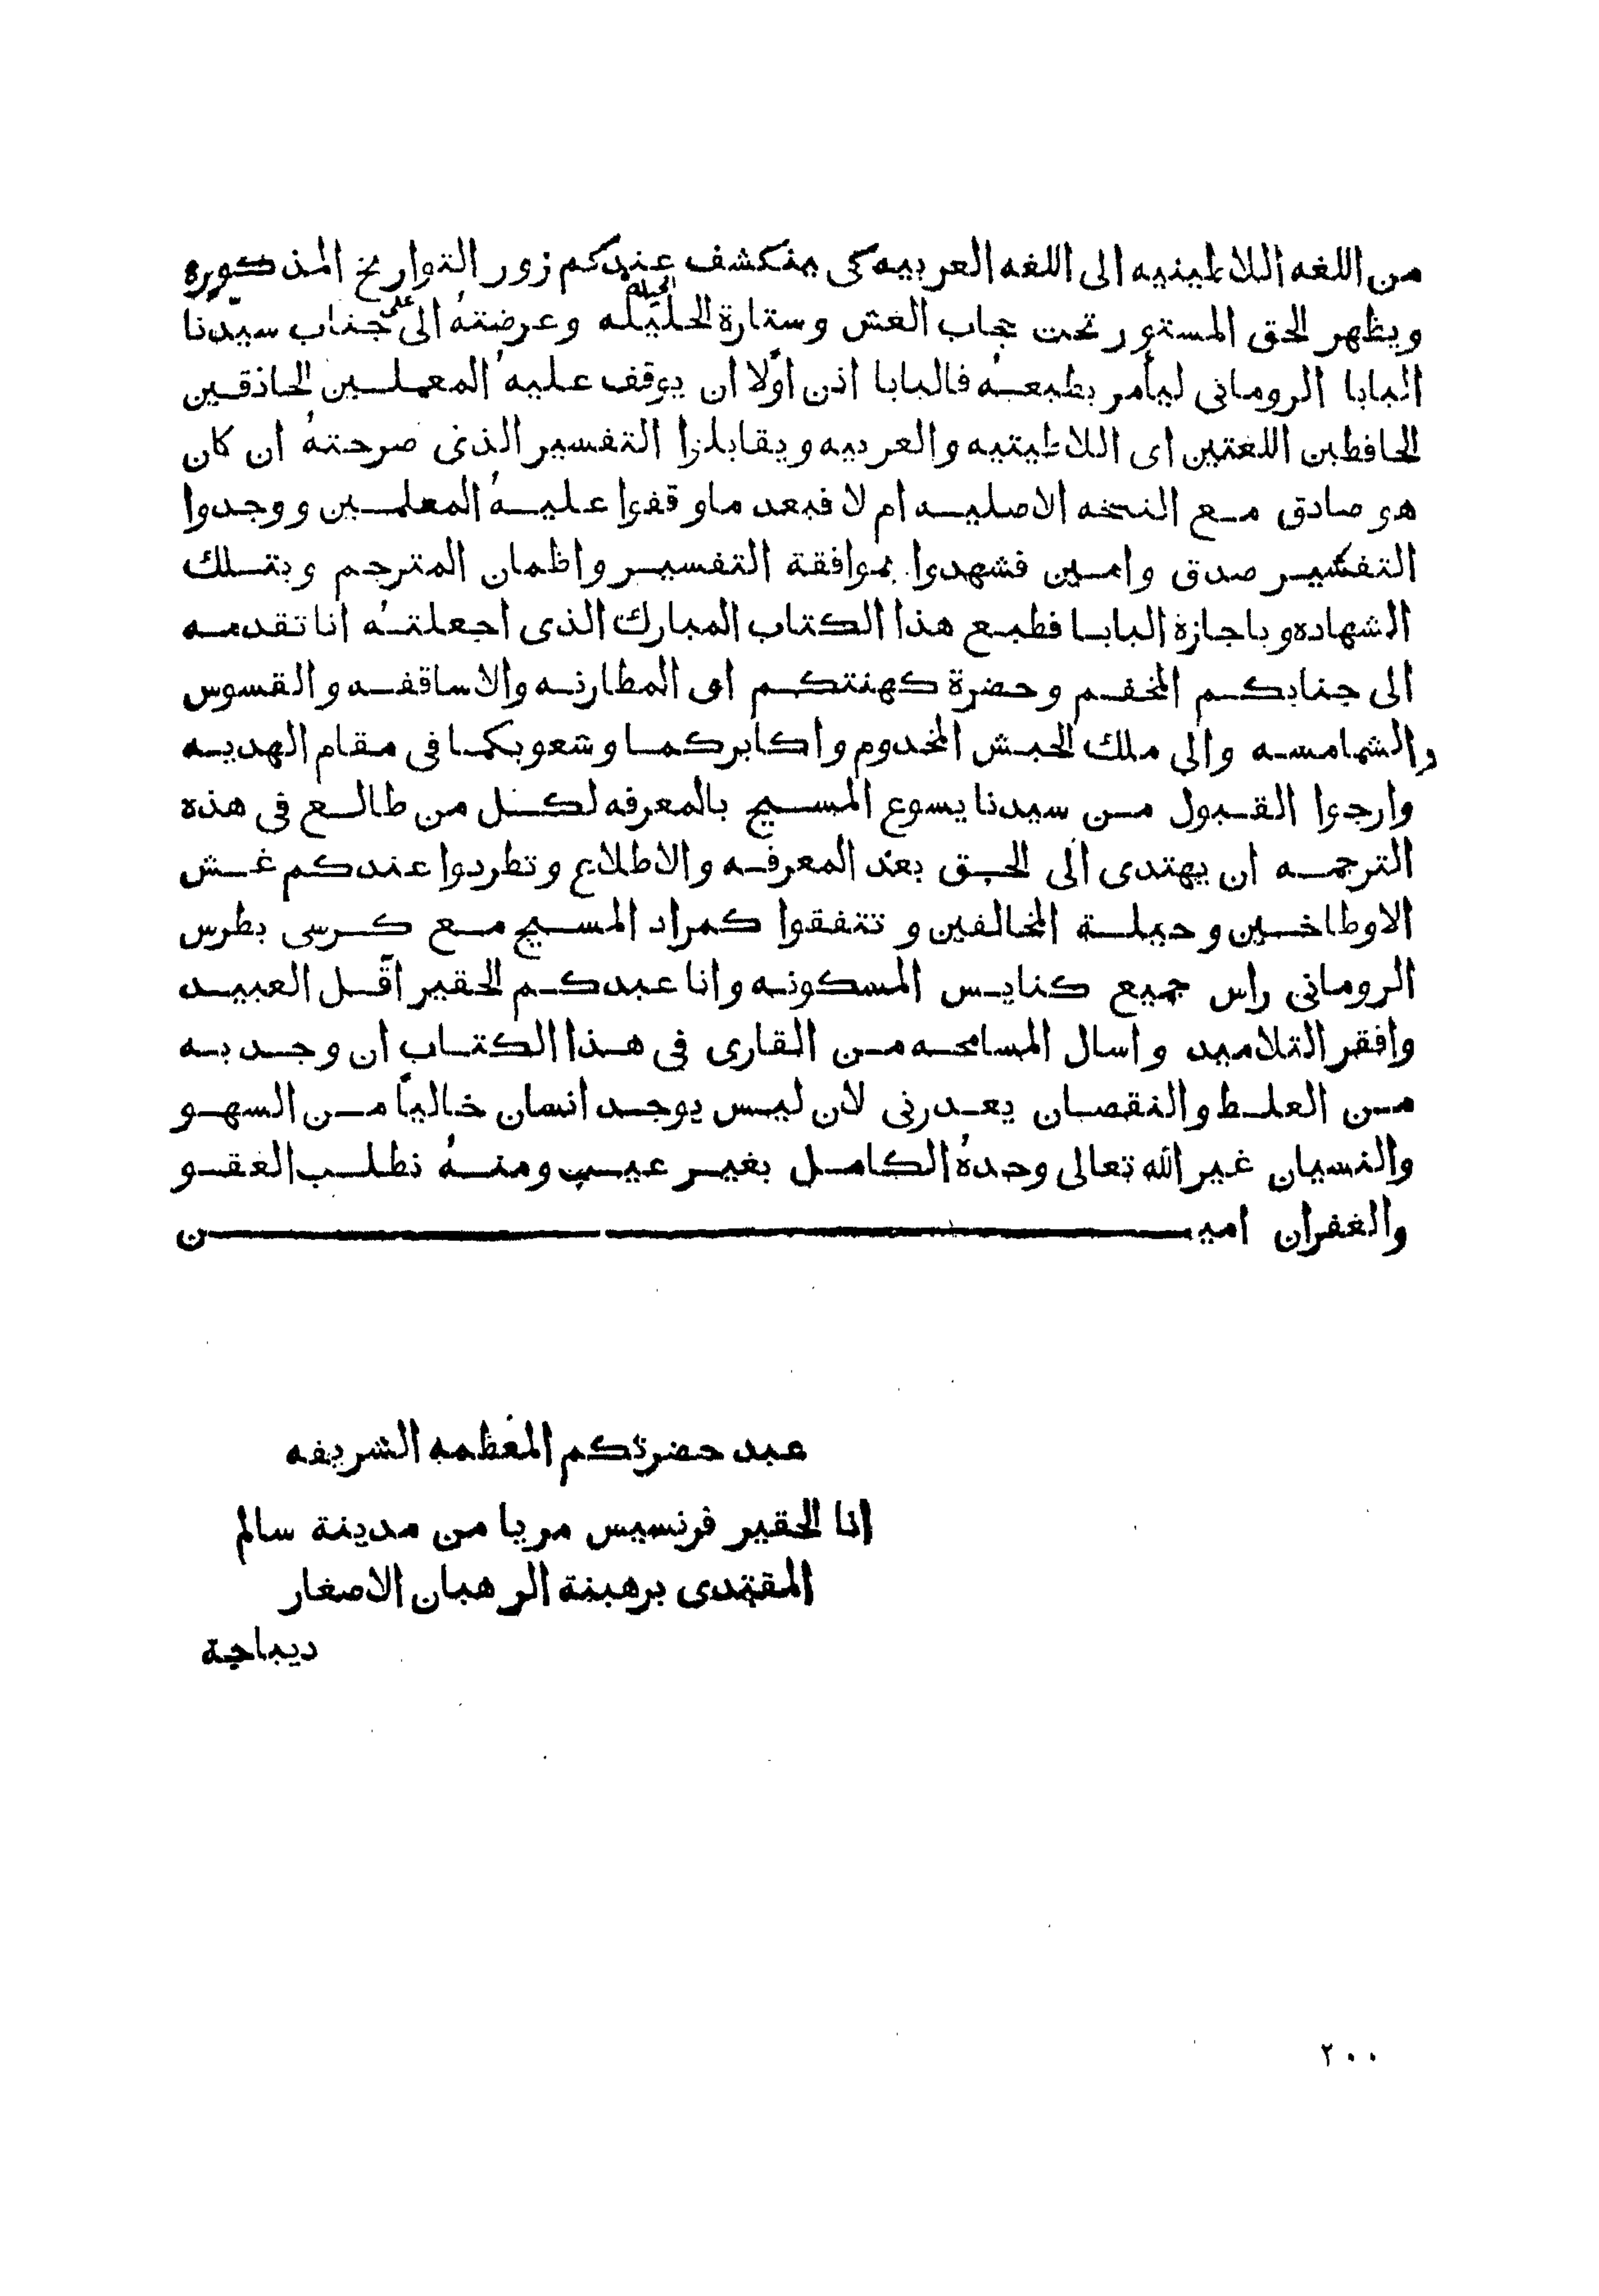 من اللغه اللاطينيه الى اللغه العربيه كى ينكشف عندكم زور التواريخ المذكوره
ويظهر الحق المستور تحت حجاب الغش وستارة الحليله وعرضتهُ الى جناب سيدنا
الحيله على
البابا الرومانى ليأمر بطبعهُ فالبابا اذن اوّلا ان يوقف عليهُ المعملين الحاذقين
الحافظين اللغتين اى اللاطيتيه والعربيه ويقابلوا التفسير الذى صرحتهُ ان كان
هو صادق مع النسخه الاصليه ام لا فبعد ما وقفوا عليهُ المعلمين ووجدوا
التفسير صدق وامين فشهدوا بموافقة التفسير واظمان المترجم وبتلك
الشهاده وباجازة البابا فطبع هذا الكتاب المبارك الذى اجعلتهُ انا تقدمه
الى جنابكم المخفم وحضرة كهنتكم اى المطارنه والاساقفه والقسوس
والشمامسه والى ملك الحبش المخدوم واكابركما وشعوبكما فى مقام الهديه
وارجوا القبول من سيدنا يسوع المسيح بالمعرفه لكل من طالع فى هذه
الترجمه ان يهتدى الى الحق بعد المعرفه والاطلاع وتطردوا عندكم غش
الاوطاخين وحيلة المخالفين وتتفقوا كمراد المسيح مع كرسى بطرس
الرومانى راس جميع كنايس المسكونه وانا عبدكم الحقير اقّل العبيد
وافقر التلاميد واسال المسامحه من القارى فى هذا الكتاب ان وجد به
من العلط والنقصان يعدرنى لان ليس يوجد انسان خالياً من السهو
والنسيان غير الله تعالى وحدهُ الكامل بغير عيب ومنهُ نطلب العقو
والغفران اميـــــــــــــن
عبد حضرتكم المعظمه الشريفه
انا الحقير فرنسيس مريا من مدينة سالم
المقتدى برهبنة الرهبان الاصغار
ديباجة
٢٠٠